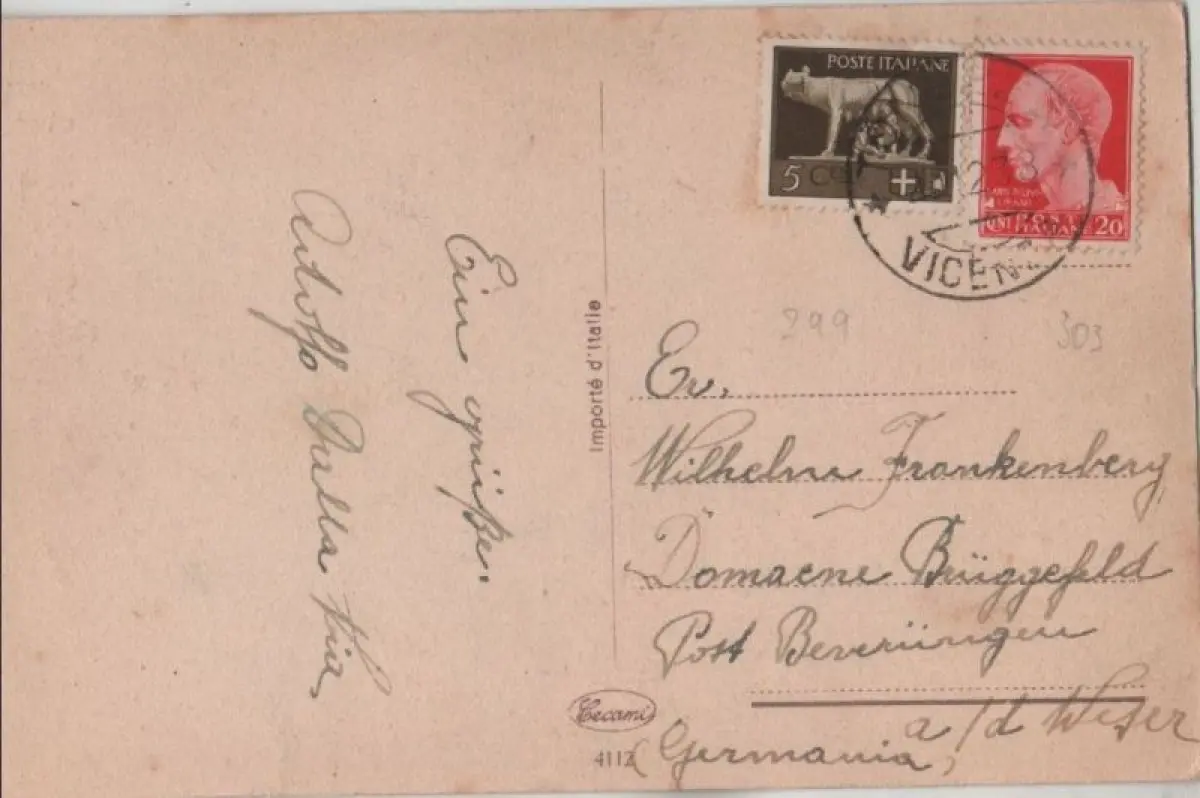 POSTE ITALIANE
5 CENT.
POSTE ITALIANE
20
VICEN
299
303
Ein grüße.
Importé d'Italie
Ev.
Wilhelm Frankenberg
Domaene Brüggefeld
Post Beverüngen
a/d Weser
(Germania)
Cecami
4112
Dalla Via,